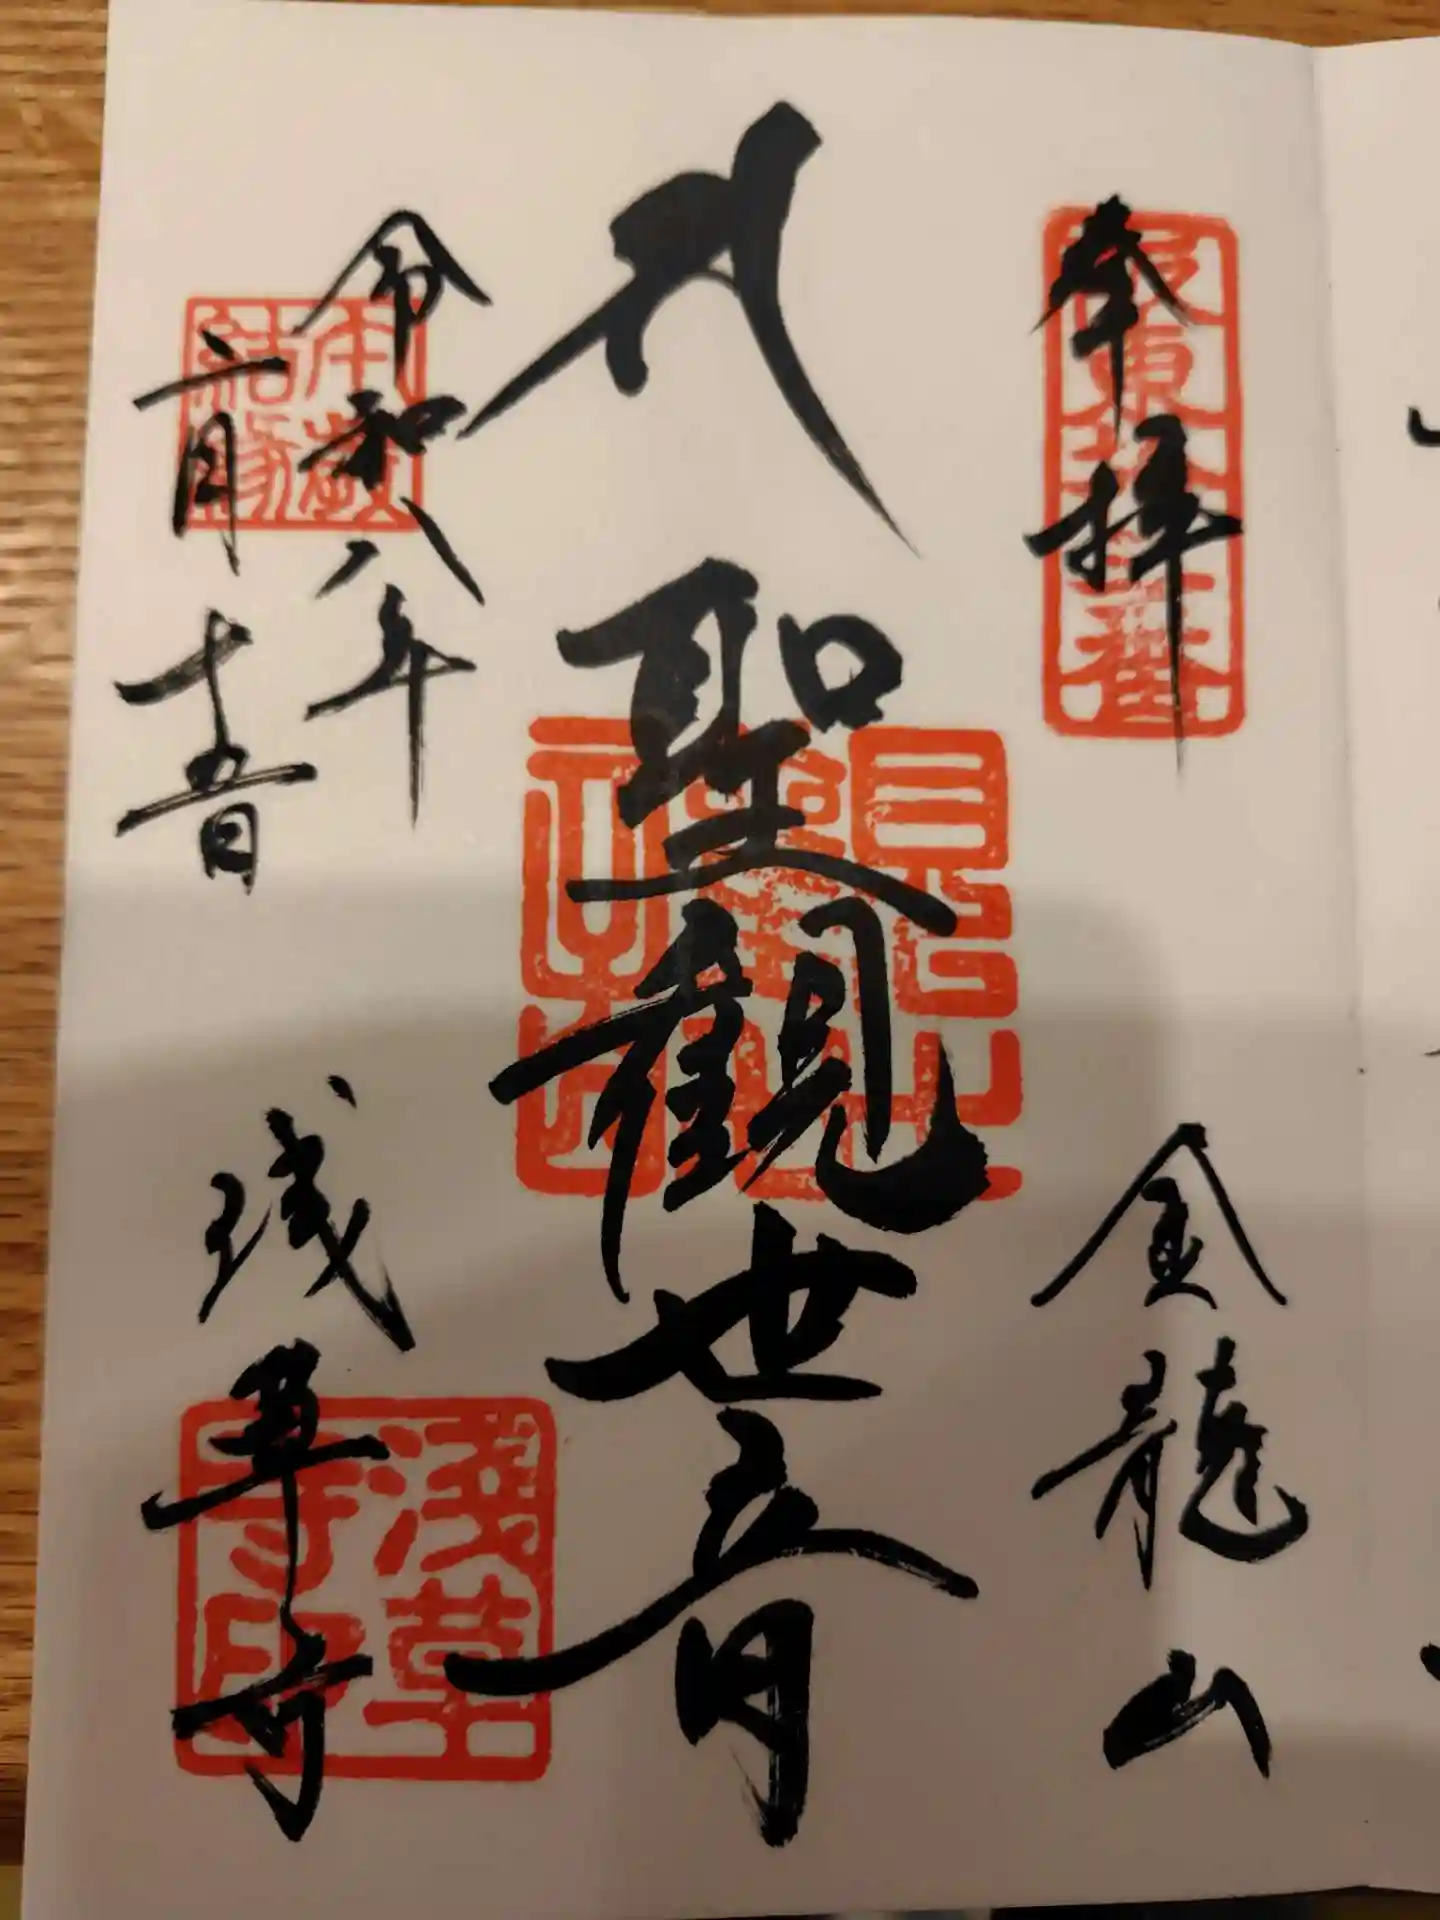 奉拝
坂東十三番
金龍山
聖観世音
令和八年
二月十五日
午歳結縁
浅草寺
淺草寺印